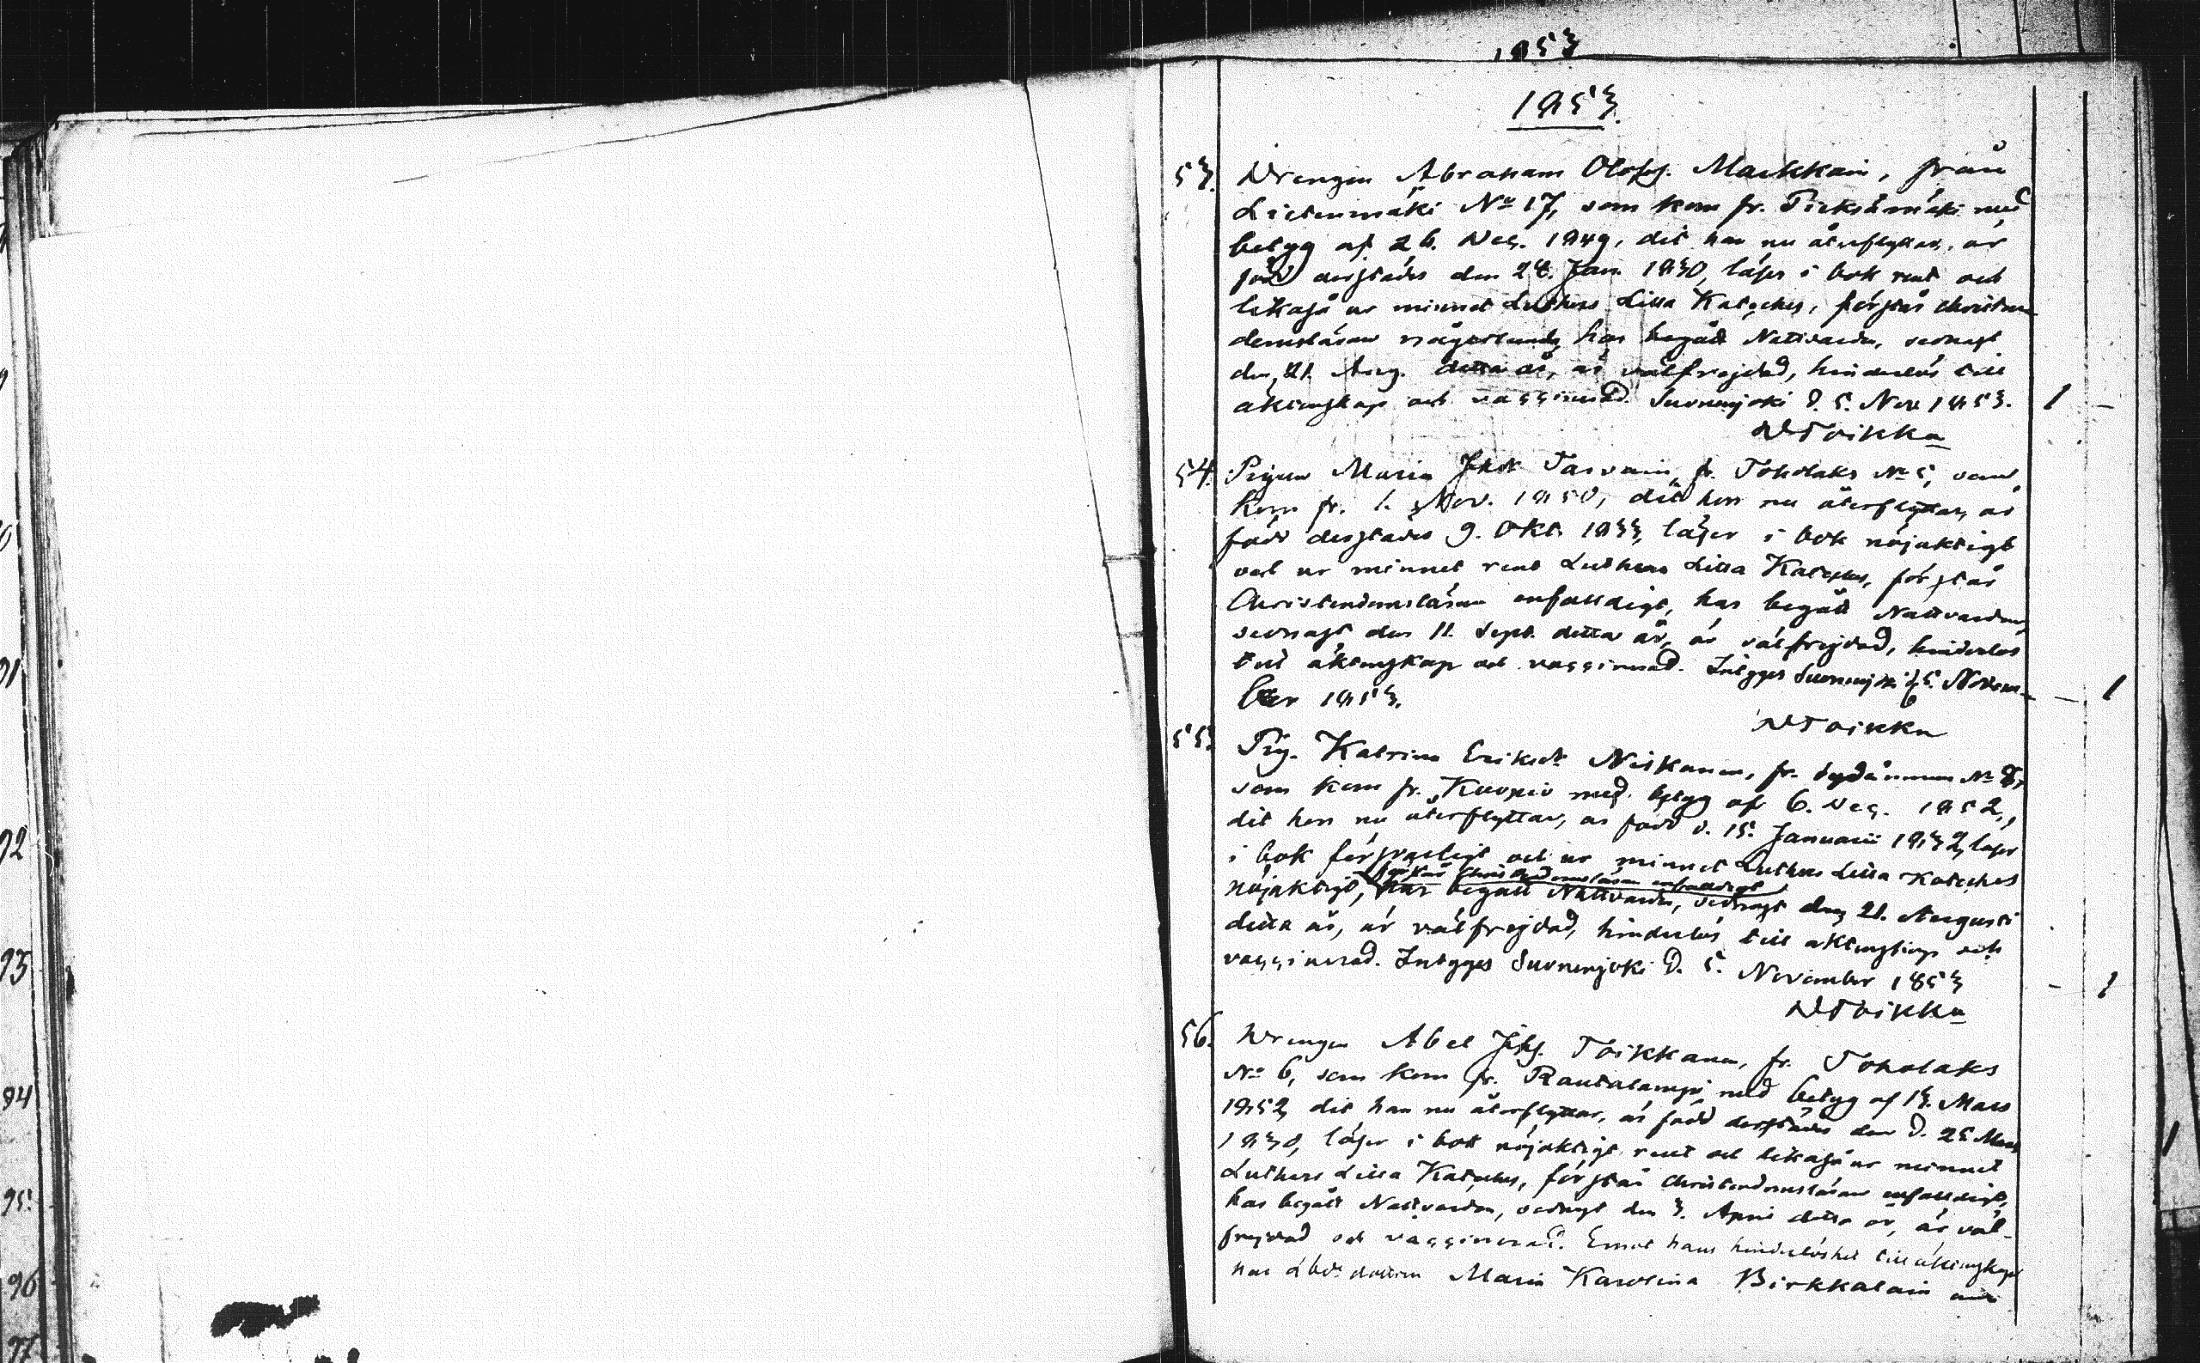 1853
1853.
53. Drengen Abraham Olofss. Markkain, från
Lietenmäki No 17, som kom fr. Pieksämäki med
betyg af 26. Dec. 1849, dit han nu återflyttar, är
född derstädes den 24. Jan. 1830, läser i bok rent och
likaså ur minnet Luthers Lilla Kateches, förstår christen-
domsläran någorlunda, har begått Nattvarden, sednast
den 21. Aug. detta år, är välfrejdad, hinderlös till
äktenskap och vaccinerad. Suonenjoki d. 5. Nov. 1853. 1 –
DToikka
54. Pigan Maria Johsdr Tarvain, fr. Toholaks No 5, som
kom fr. 1. Nov. 1850, dit hon nu återflyttar, är
född derstädes 9. Okt. 1833, läser i bok nöjaktigt
och ur minnet rent Luthers Lilla Kateches, förstår
Christendomsläran enfaldigt, har begått Nattvarden,
sednast den 11. Sept. detta år, är välfrejdad, hinderlös
till äktenskap och vaccinerad. Intygas Suonenjoki d. 5. Novem-
ber 1853. – 1
DToikka
55. Pig. Katrina Eriksdr Niskanen, fr. Sydänmaa No 8,
som kom fr. Kuopio med betyg af 6. Dec. 1852,
dit hon nu återflyttar, är född d. 15. Januarii 1832, läser
i bok försvarligt och ur minnet Luthers Lilla Kateches
förstår Christendomsläran enfaldigt
nöjaktigt, har begått Nattvarden, sednast den 21. Augusti
detta år, är välfrejdad, hinderlös till äktenskap och
vaccinerad. Intygas Suonenjoki d. 5. November 1853 – 1
DToikka
56. Drengen Abel Johss. Toikkanen, fr. Toholaks
No 6, som kom fr. Rautalampi med betyg af 13. Mars
1852, dit han nu återflyttar, är född derstädes den d. 25 Mars
1830, läser i bok nöjaktigt rent och likaså ur minnet
Luthers Lilla Kateches, förstår Christendomsläran enfaldigt,
har begått Nattvarden, sednast den 3. April detta år, är väl-
frejdad och vaccinerad. Emot hans hinderlöshet till äktenskap
har dottren Maria Karolina Birkkalain
1
91
92
93
94
95.
96
97